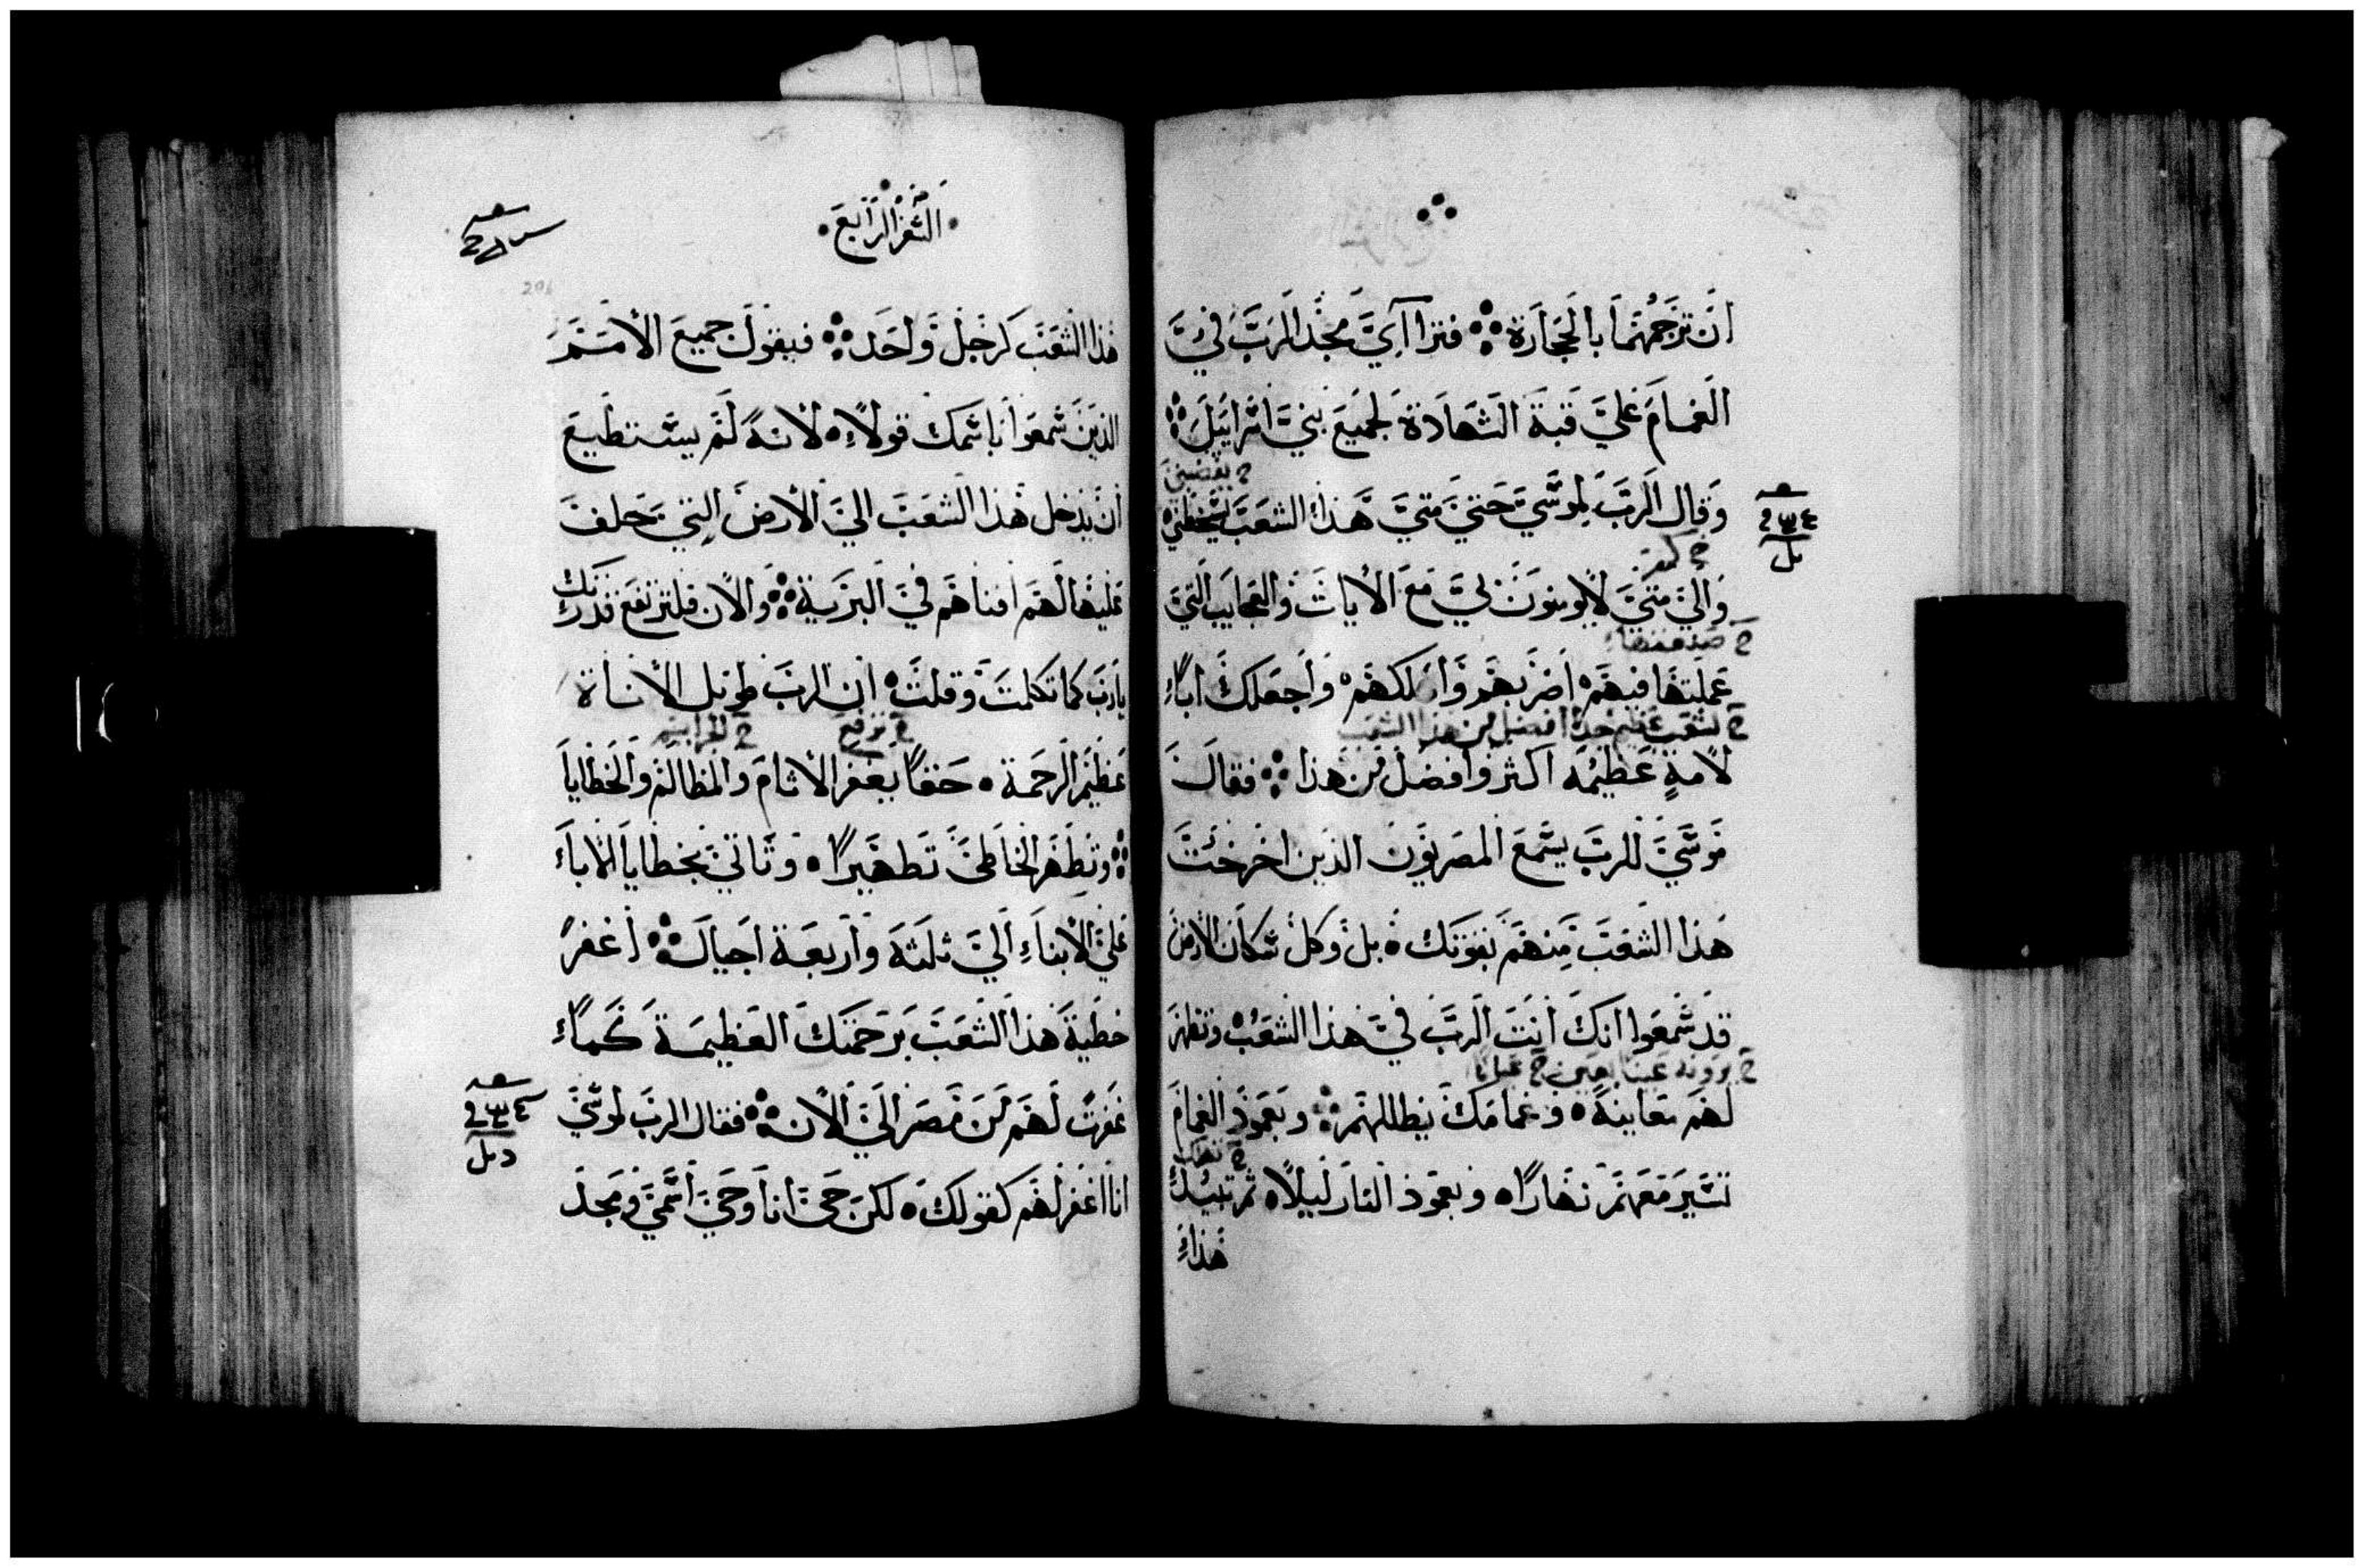 ان ترجمهما بالحجارة فتراآي مجد الرب في
الغمام علي قبة الشهادة لجميع بني اسراييل
وقال الرب لموسي حتي متي هذا الشعب يسخطني
والي متي لا يومنون لي مع الايات والعجايب التي
عملتها فيهم اضربهم واهلكهم واجعلك اباء
لشعب عظيم جدا افضل من هذا الشعب
لامة عظيمه اكثر وافضل من هذا فقال
موسي للرب يسمع المصريون الذين اخرجت
هذا الشعب منهم بقوتك بل وكل سكان الارض
قد سمعوا انك انت الرب في هذا الشعب وتظهر
لهم معاينة وغمامك يظللهم وبعمود الغمام
تسير معهم نهارا وبعمود النار ليلا ثم تبيد
هذاء
السفر الرابع
هذا الشعب كرجل واحد فيقول جميع الامم
الذين سمعوا باسمك قولاء لانه لم يستطيع
ان يدخل هذا الشعب الي الارض التي حلف
عليها لهم افناهم في البرية والان فلترتفع قدرتك
يارب كما تكلمت وقلت ان الرب طويل الاناة
عظيم الرحمة حقا يغفر الاثام والمظالم والخطايا
وتطهر الخاطي تطهيرا وتاتي بخطايا الاباء
علي الابناء الي ثلثه واربعة اجيال اغفر
خطية هذا الشعب برحمتك العظيمة كماء
غفرت لهم من مصر الي الان فقال الرب لموسي
انا اغفر لهم كقولك لكن حي انا وحي اسمي ومجد